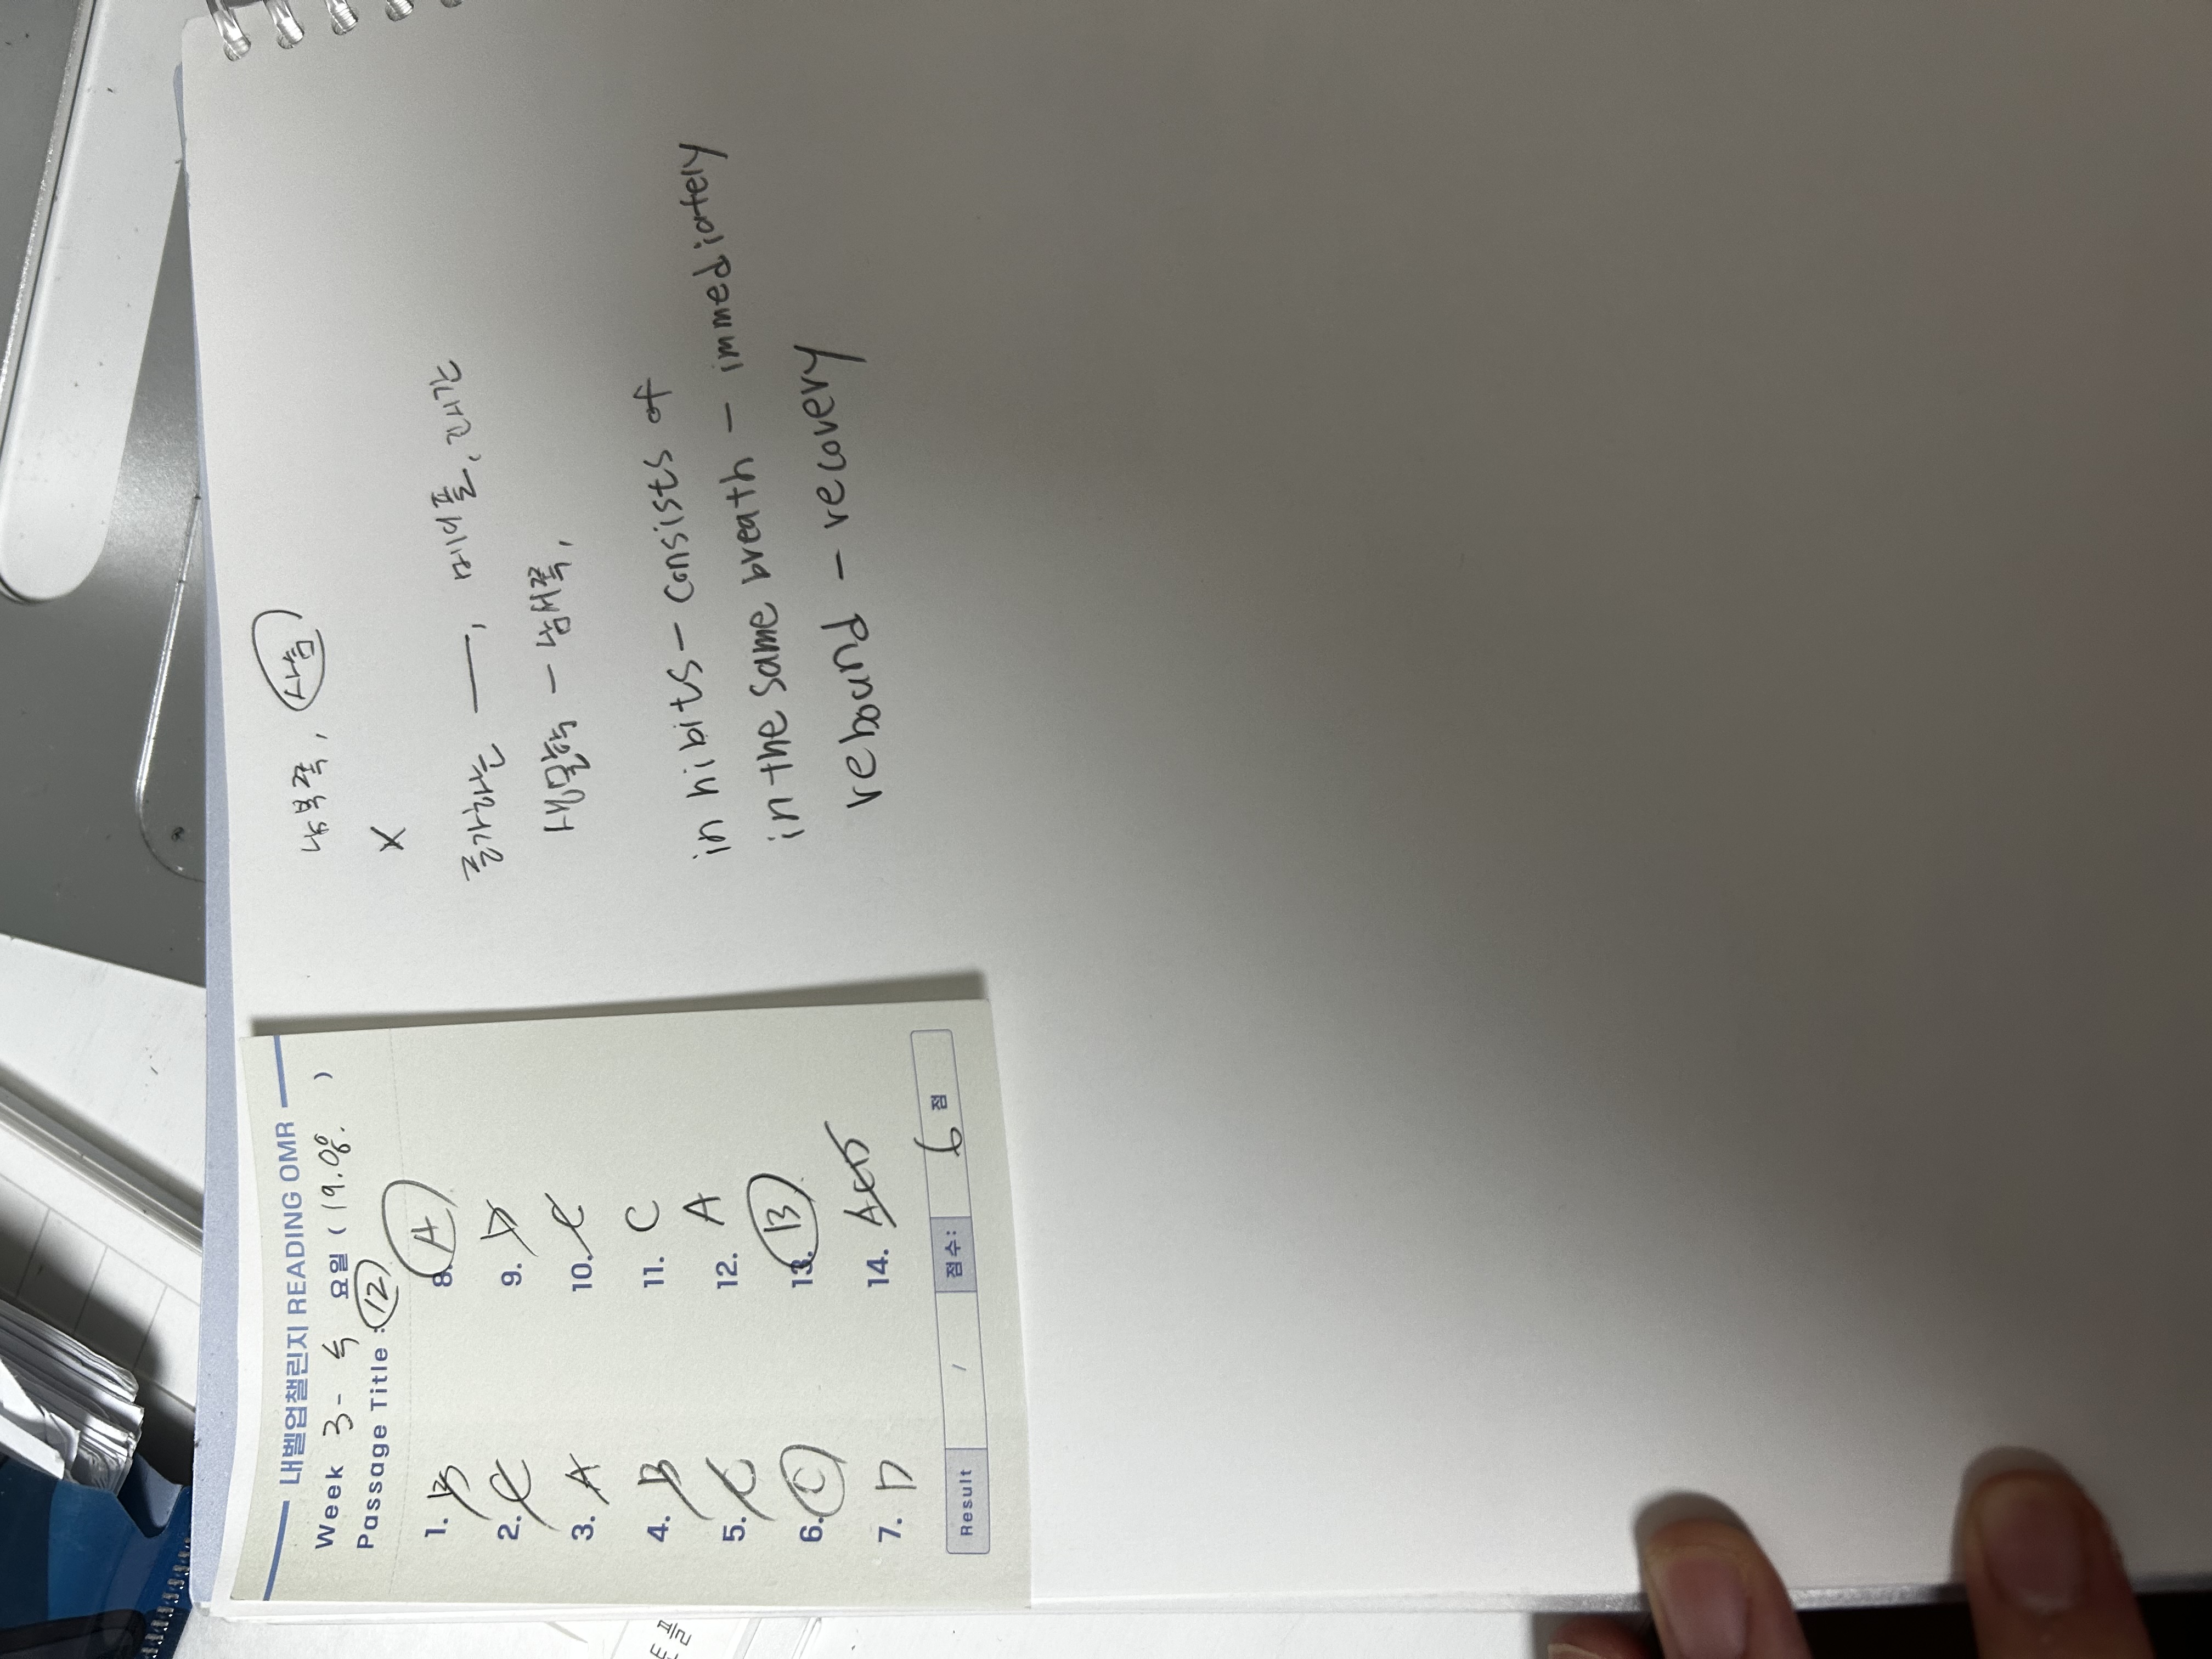 내벨업챌린지 READING OMR
Week 3- 수 요일 (19.08. )
Passage Title : 12
1. B
2. C
3. A
4. B
5. C
6. C
7. D
8. A
9. D
10. C
11. C
12. A
13. B
14.
Result / 점수: 6 점
남북쪽, 사슴
X
증가하는 —, 메이플, 건기는
생물학 - 남서쪽,
inhibits - consists of
in the same breath - immediately
rebound - recovery